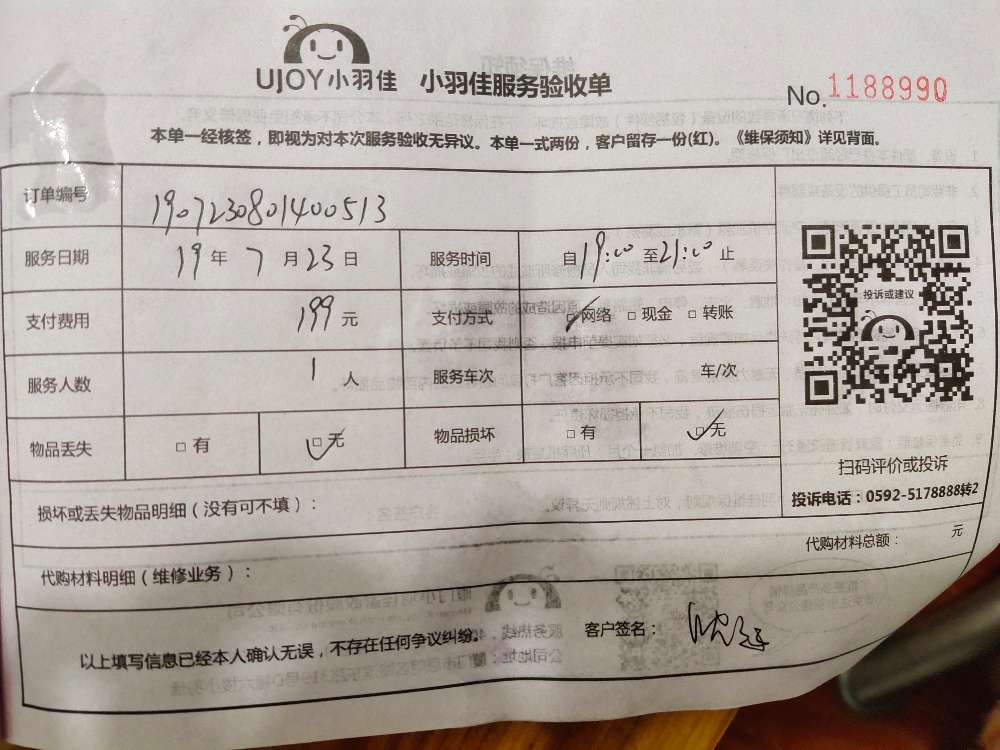 UJOY小羽佳 小羽佳服务验收单
No.1188990
本单一经核签，即视为对本次服务验收无异议。本单一式两份，客户留存一份(红)。《维保须知》详见背面。
订单编号 1907230801400513
服务日期 19年7月23日 服务时间 自19:00至21:00止
支付费用 199元 支付方式 □网络 □现金 □转账
服务人数 1人 服务车次 车/次
物品丢失 □有 □无 物品损坏 □有 □无
投诉或建议
扫码评价或投诉
投诉电话：0592-5178888转2
损坏或丢失物品明细（没有可不填）：
代购材料总额： 元
代购材料明细（维修业务）：
客户签名：
以上填写信息已经本人确认无误，不存在任何争议纠纷。